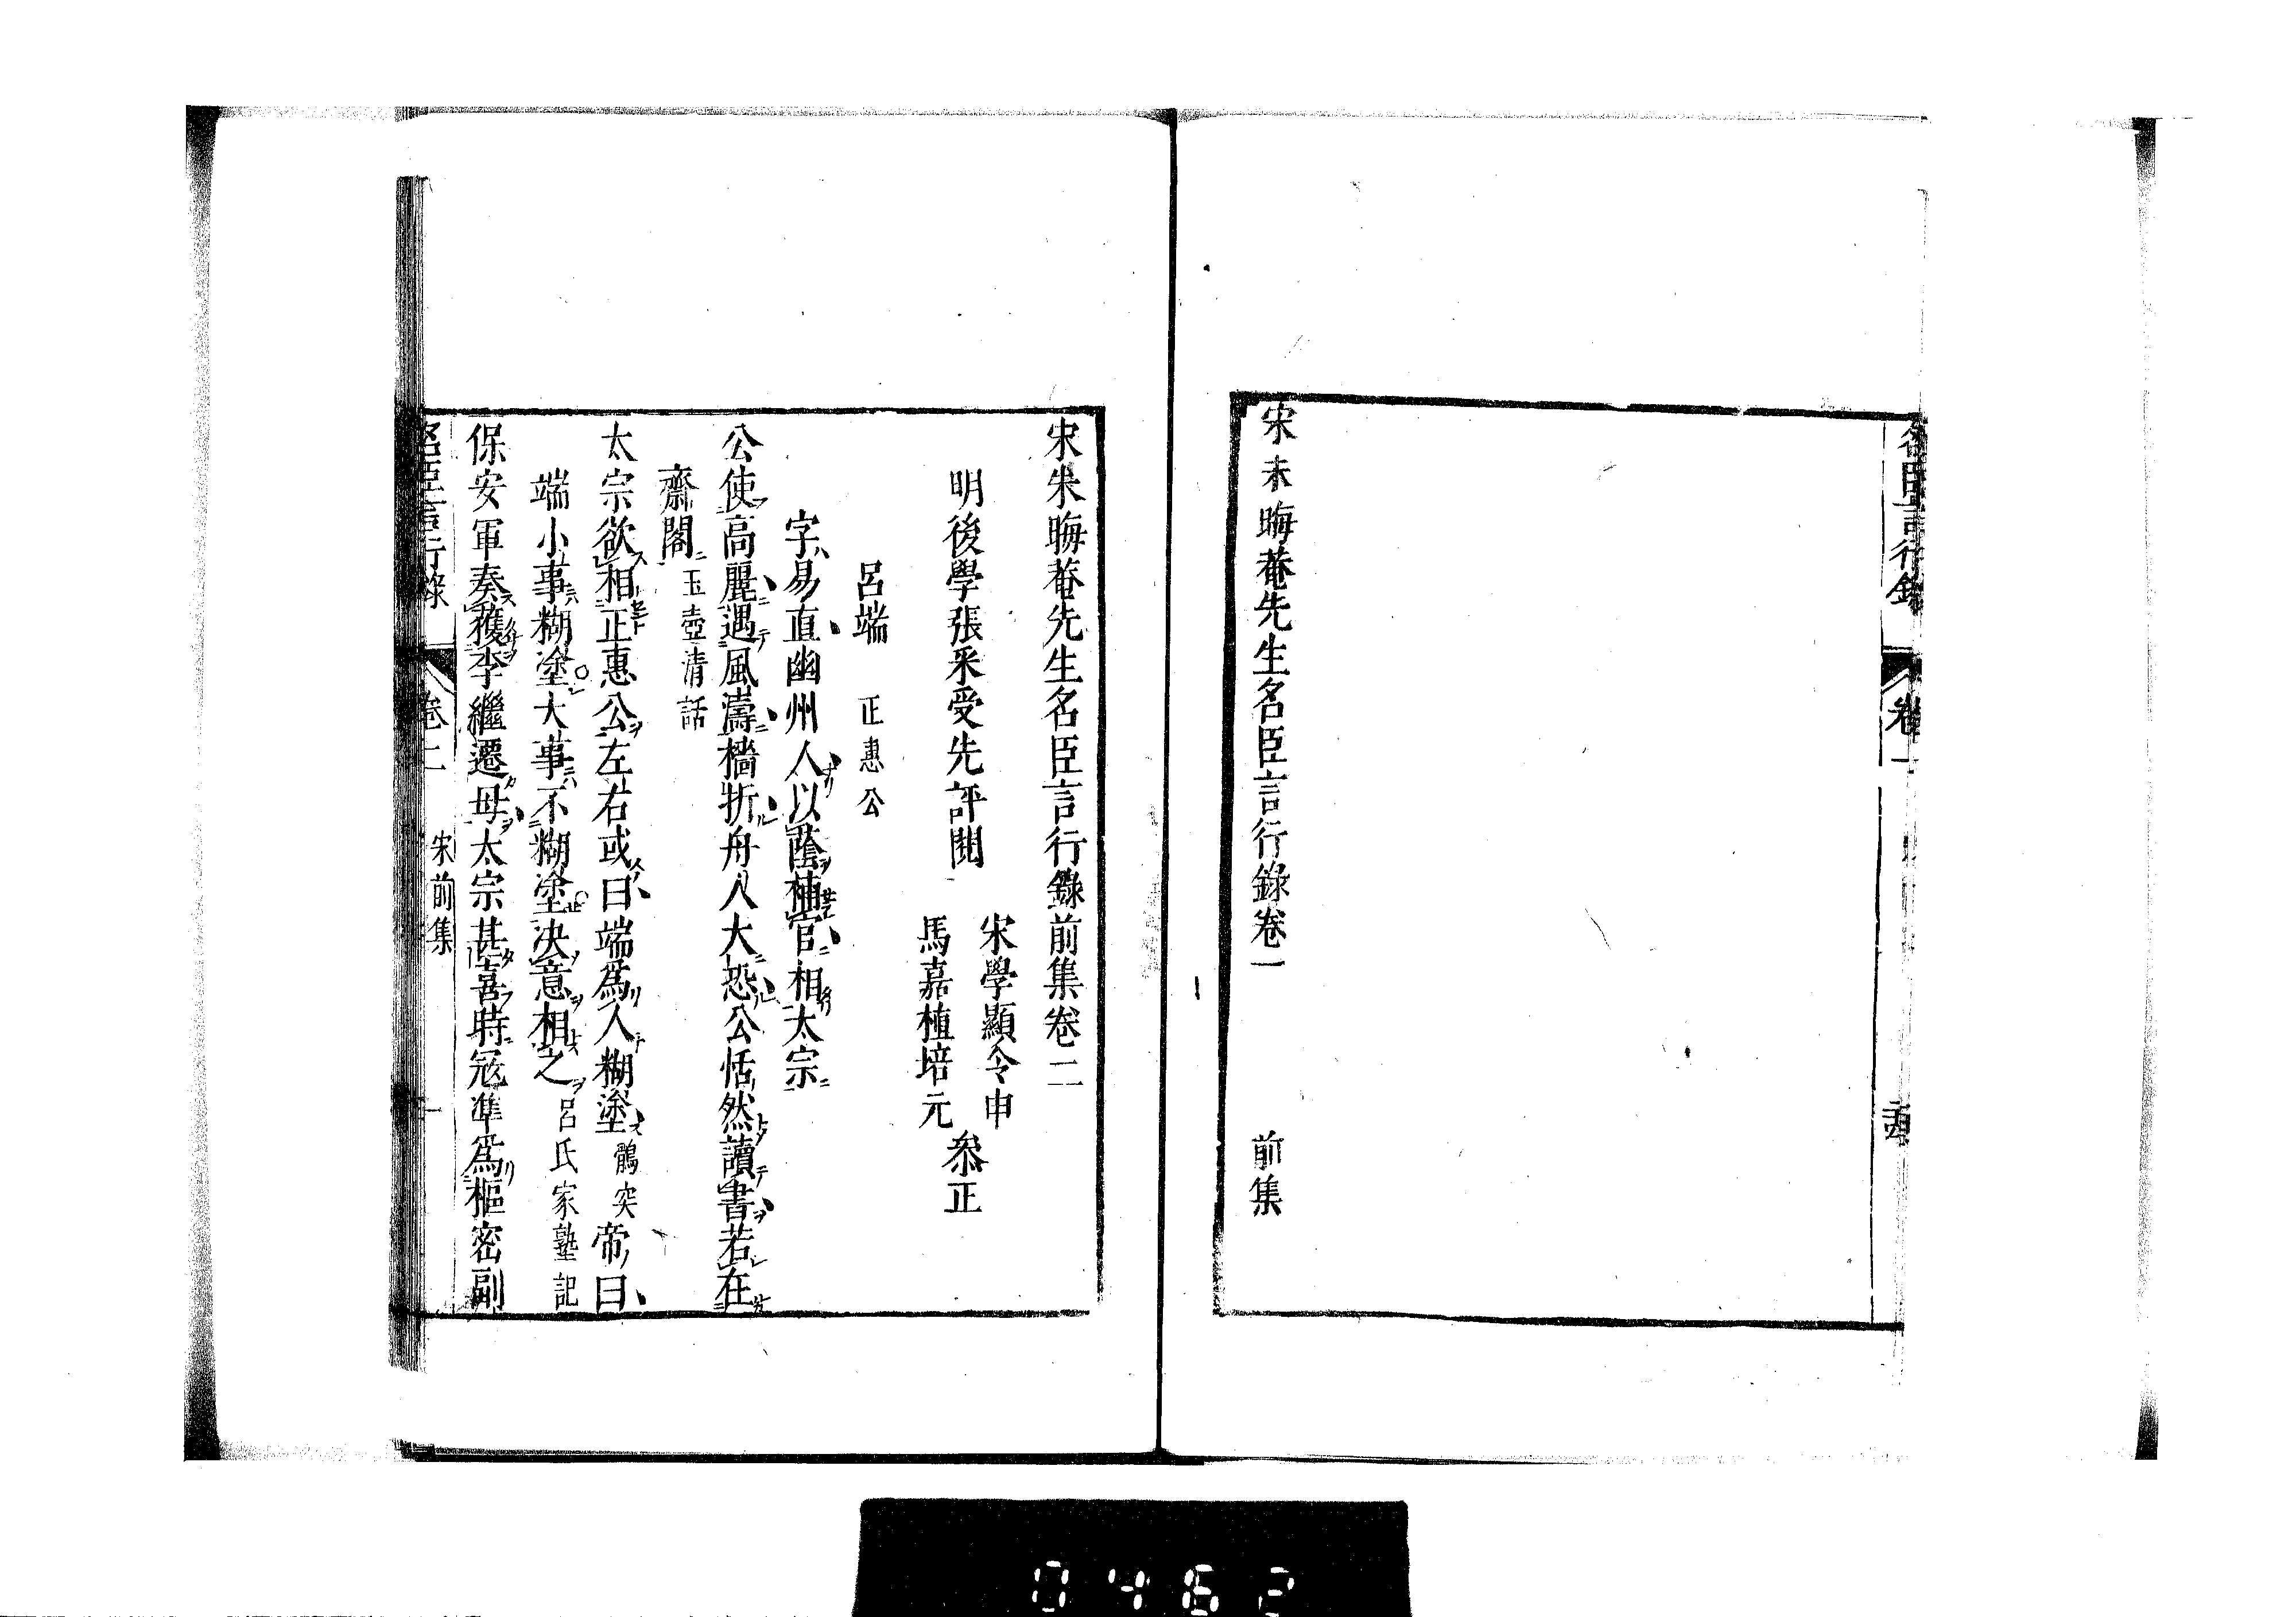 名臣言行錄 卷一
宋朱晦菴先生名臣言行錄卷一 前集
宋朱晦菴先生名臣言行錄前集卷二
明後學張采受先評閱 宋學顯令申
馬嘉植培元 叅正
呂端 正惠公
字易直幽州人以蔭補官相太宗
公使高麗遇風濤檣折舟人大恐公恬然讀書若在
齋閣 玉壺清話
太宗欲相正惠公左右或曰端爲人糊塗 鶻突 帝曰
端小事糊塗大事不糊塗决意相之 呂氏家塾記
保安軍奏獲李繼遷母太宗甚喜時宼準爲樞密副
名臣言行錄 卷二 宋前集 一
0462